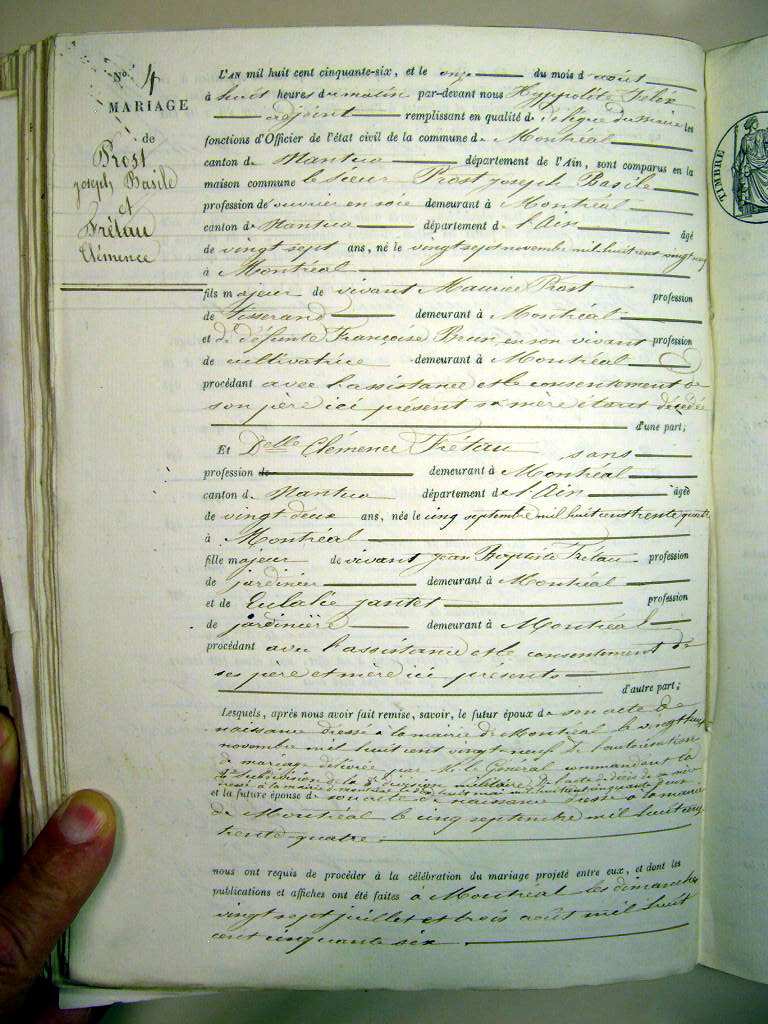 N.º 4
MARIAGE
de
Prost
Joseph Basile
et
Frétau
Clémence
L'AN mil huit cent cinquante-six, et le onze du mois d'août
à huit heures du matin par-devant nous Hyppolite Félix
adjoint remplissant en qualité de délégué du maire les
fonctions d'Officier de l'état civil de la commune de Montréal
canton de Nantua département de l'Ain, sont comparus en la
maison commune le sieur Prost Joseph Basile
profession de ouvrier en soie demeurant à Montréal
canton de Nantua département de l'Ain âgé
de vingt sept ans, né le vingt sept novembre mil huit cent vingt neuf
à Montréal
fils majeur de vivant Maurice Prost profession
de Tisserand demeurant à Montréal
et de défunte Françoise Brun en son vivant profession
de cultivatrice demeurant à Montréal
procédant avec l'assistance et le consentement de
son père ici présent sa mère étant décédée
d'une part;
Et Delle Clémence Frétau sans
profession de demeurant à Montréal
canton de Nantua département de l'Ain âgée
de vingt deux ans, née le cinq septembre mil huit cent trente quatre
à Montréal
fille majeur de vivant Jean Baptiste Frétau profession
de jardinier demeurant à Montréal
et de Eulalie Jantet profession
de jardinière demeurant à Montréal
procédant avec l'assistance et le consentement de
ses père et mère ici présents
d'autre part;
Lesquels, après nous avoir fait remise, savoir, le futur époux de son acte de
naissance dressé à la mairie de Montréal le vingt huit
novembre mil huit cent vingt neuf de l'autorisation
de mariage délivrée par M. le Général commandant la
4e subdivision de la division militaire, de l'acte de décès de sa mère
dressé à la mairie de Montréal le huit mai mil huit cent cinquante
et la future épouse de son acte de naissance dressé à la mairie
de Montréal le cinq septembre mil huit cent
trente quatre
nous ont requis de procéder à la célébration du mariage projeté entre eux, et dont les
publications et affiches ont été faites à Montréal les dimanches
vingt sept juillet et trois août mil huit
cent cinquante six
TIMBRE